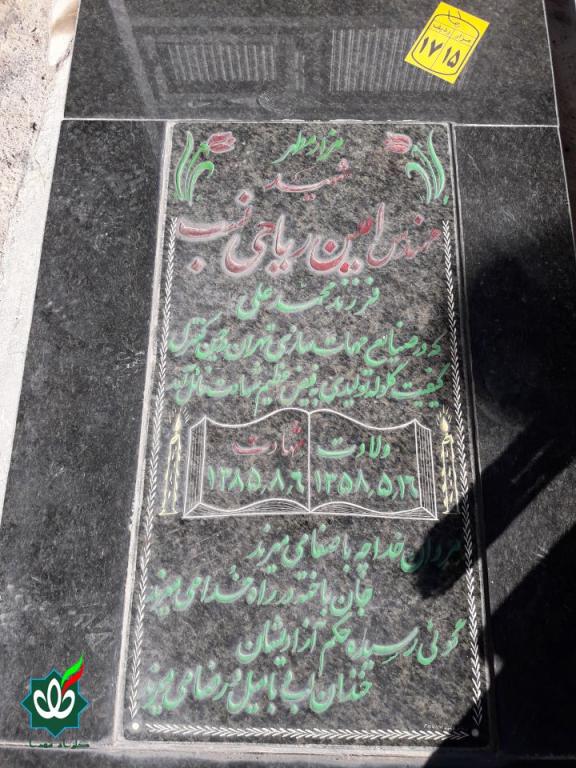 مزار ردیف
۱۷ ۱۵
مزار مطهر
شهید
مهندس امین ریاحی نسب
فرزند محمد علی
که در صنایع مهمات سازی تهران حین کنترل
کیفیت گلوله تولیدی بفیض عظیم شهادت نائل آمد
ولادت شهادت
۱۳۵۸,۵,۲۶ ۱۳۸۵,۸,۶
مردان خدا چه با صفا می میرند
جان باخته در راه خدا می میرند
گوئی رسیده حکم آزادیشان
خندان لب با میل و رضا می میرند